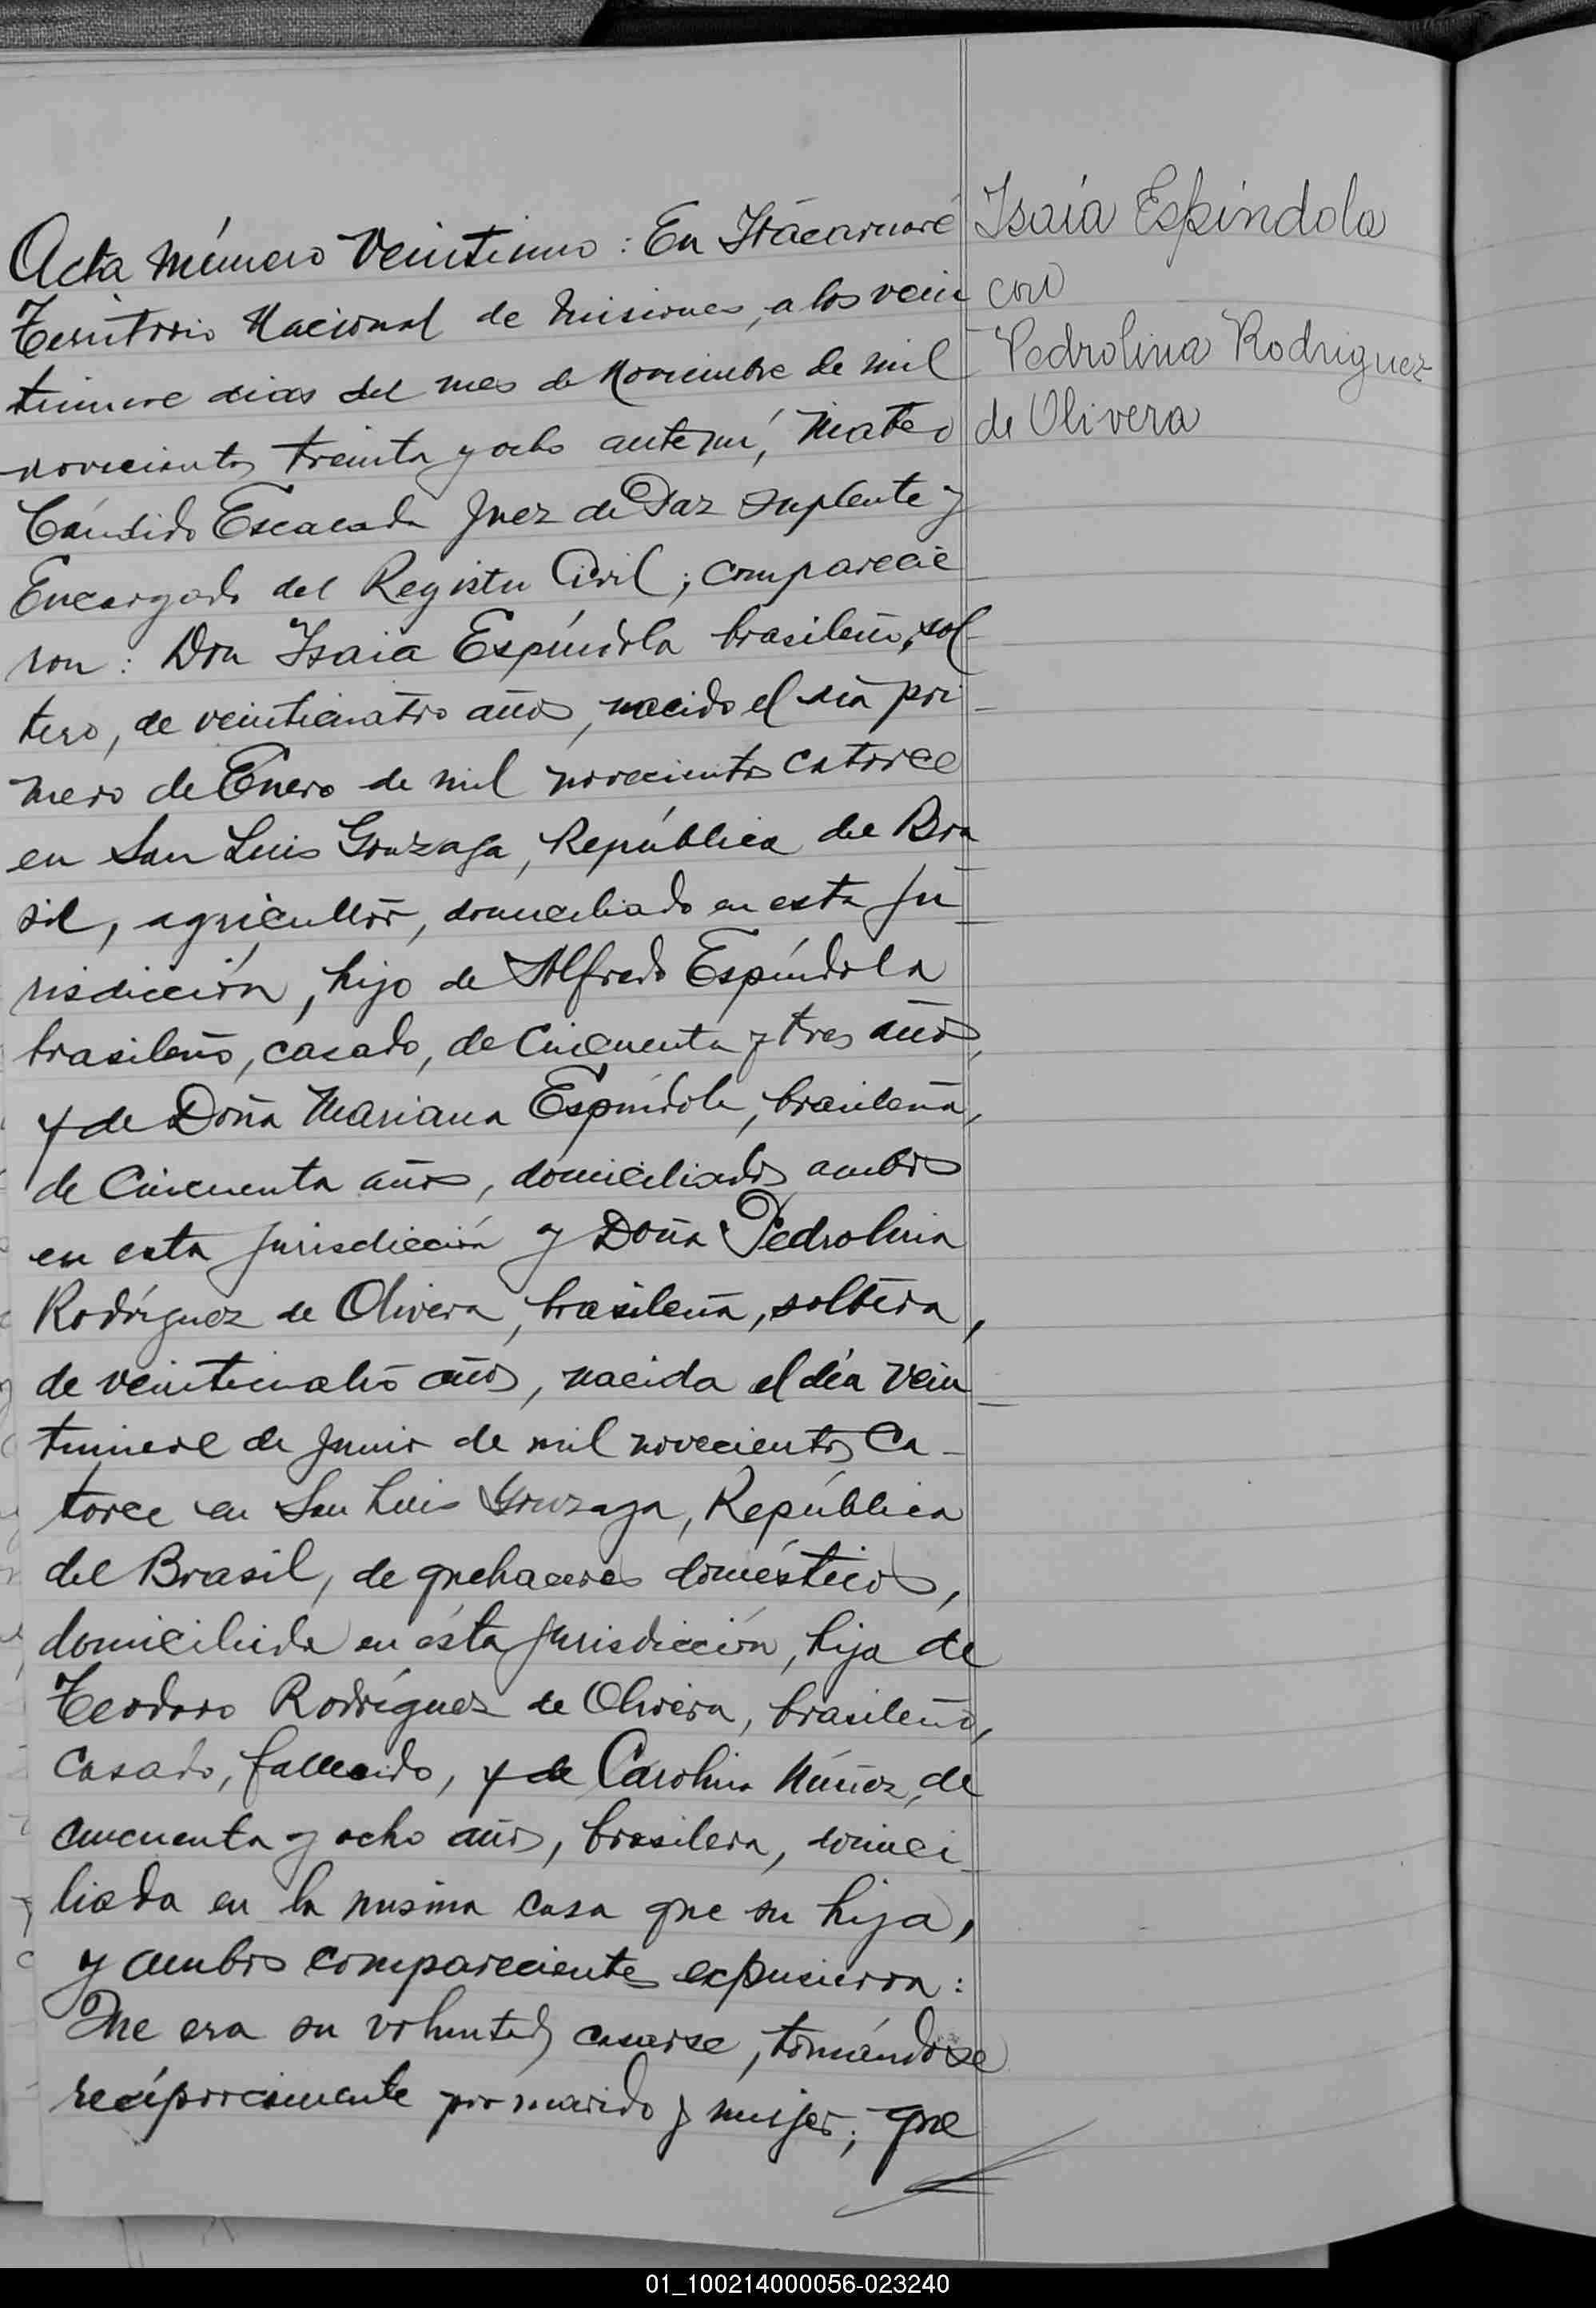 Acta Número Veintiuno: En Itacaruaré
Territorio Nacional de Misiones, a los vein
tinueve dias del mes de Noviembre de mil
novecientos treinta y ocho ante mí, Mateo
Cándido Escacada Juez de Paz Suplente y
Encargado del Registro Civil; comparecie
ron: Don Isaia Espíndola brasileño, sol-
tero, de veinticuatro años, nacido el día pri-
mero de Enero de mil novecientos catorce
en San Luis Gonzaga, República del Bra
sil, agricultor, domiciliado en esta Ju-
risdicción, hijo de Alfredo Espíndola
brasileño, casado, de cincuenta y tres años,
y de Doña Mariana Espíndola, brasileña,
de Cincuenta años, domiciliados ambos
en esta jurisdicción y Doña Pedrolina
Rodríguez de Olivera, brasileña, soltera,
de veinticuatro años, nacida el día vein-
tinueve de Junio de mil novecientos Ca-
torce en San Luis Gonzaga, República
del Brasil, de quehaceres domésticos,
domiciliada en ésta jurisdicción, hija de
Teodoro Rodríguez de Olivera, brasileño,
casado, fallecido, y de Carolina Núñez, de
cincuenta y ocho años, brasilera, domici-
liada en la misma casa que su hija,
y ambos comparecientes expusieron:
Que era su voluntad casarse, tomándose
recíprocamente por marido y mujer; que
Isaía Espíndola
con
Pedrolina Rodriguez
de Olivera
01_100214000056-023240